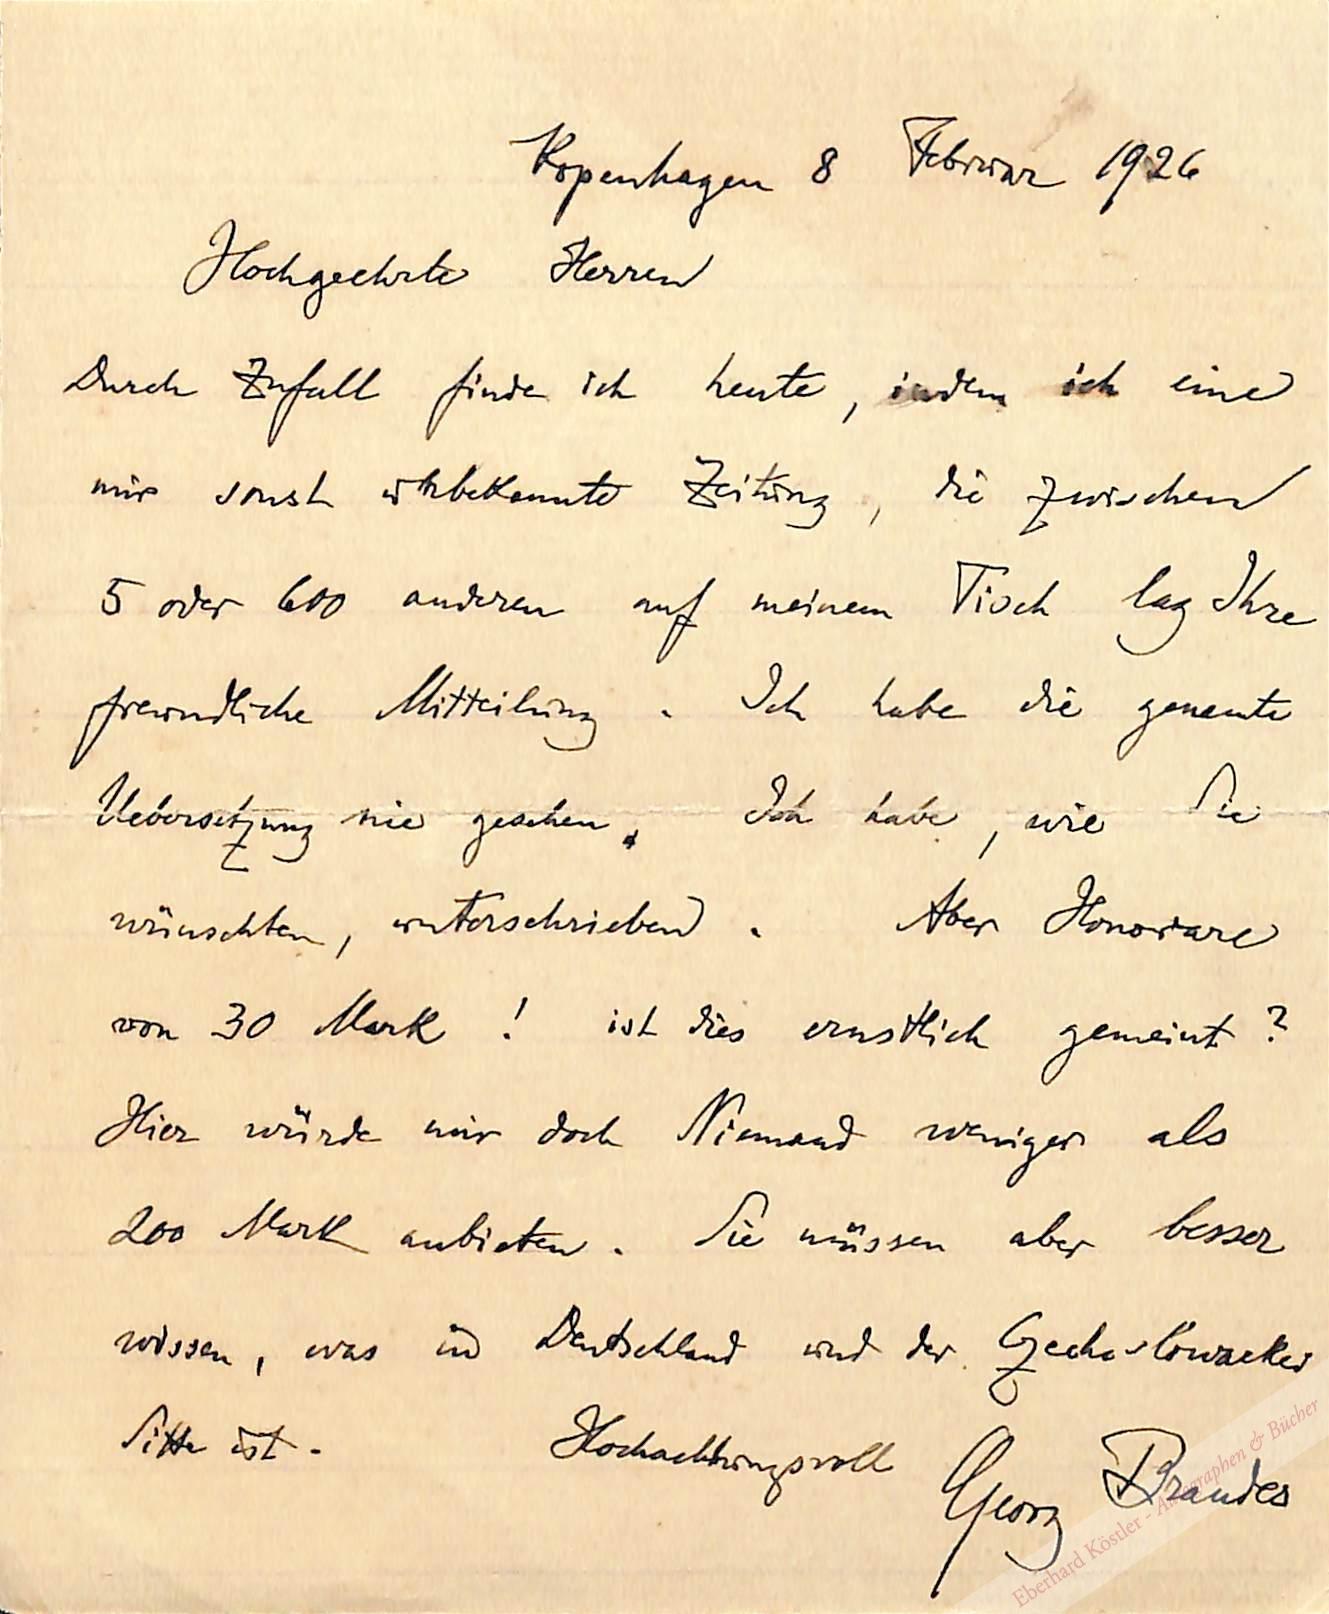 Kopenhagen 8 Februar 1926
Hochgeehrte Herren
Durch Zufall finde ich heute, indem ich eine
mir sonst unbekannte Zeitung, die zwischen
5 oder 600 anderen auf meinem Tisch lag Ihre
freundliche Mitteilung. Ich habe die genannte
Uebersetzung nie gesehen. Ich habe, wie Sie
wünschten, unterschrieben. Aber Honorare
von 30 Mark! ist dies ernstlich gemeint?
Hier würde mir doch Niemand weniger als
200 Mark anbieten. Sie müssen aber besser
wissen, was in Deutschland und der
Sitte ist. Hochachtungsvoll Georg Brandes
Eberhard Köstler - Autographen & Bücher